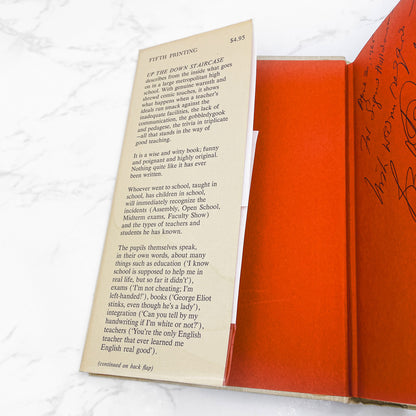 FIFTH PRINTING
$4.95
UP THE DOWN STAIRCASE
describes from the inside what goes
on in a large metropolitan high
school. With genuine warmth and
shrewd comic touches, it shows
what happens when a teacher's
ideals run smack against the
inadequate facilities, the lack of
communication, the gobbledygook
and pedagese, the trivia in triplicate
—all that stands in the way of
good teaching.
It is a wise and witty book; funny
and poignant and highly original.
Nothing quite like it has ever
been written.
Whoever went to school, taught in
school, has children in school,
will immediately recognize the
incidents (Assembly, Open School,
Midterm exams, Faculty Show)
and the types of teachers and
students he has known.
The pupils themselves speak,
in their own words, about many
things such as education ('I know
school is supposed to help me in
real life, but so far it didn't'),
exams ('I'm not cheating; I'm
left-handed!'), books ('George Eliot
stinks, even though he's a lady'),
integration ('Can you tell by my
handwriting if I'm white or not?'),
teachers ('You're the only English
teacher that ever learned me
English real good').
(continued on back flap)